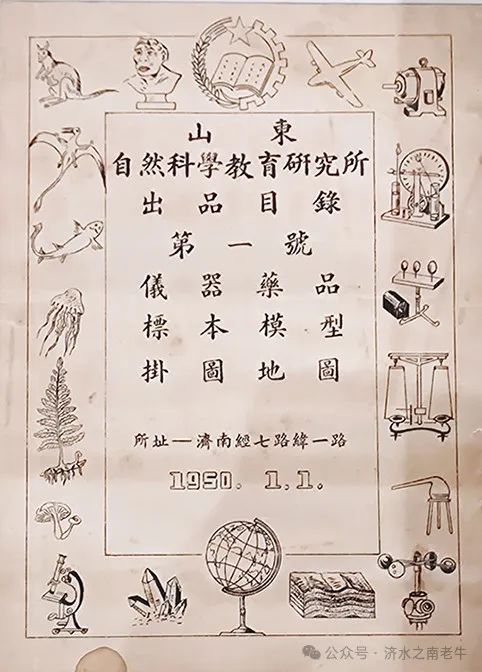 山東
自然科學教育研究所
出品目錄
第一號
儀器藥品
標本模型
掛圖地圖
所址—濟南經七路緯一路
1950. 1.1.
公众号·济水之南老牛